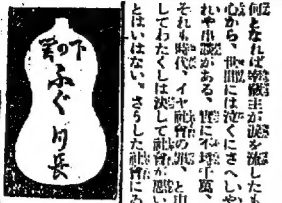 何となれば が涙を流したも
心から、世間には泣くにさへしや
れや串談がある、實に不埒千萬、
それも時代、イヤ社會の罪、と申
してわたくしは決して社會が惡い
とはいはない。さうした社會にゐ
下の
ふぐ月